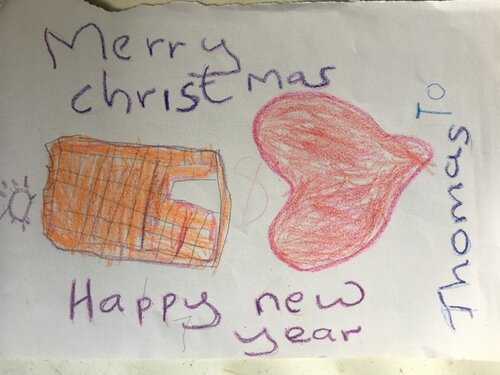 Merry
christmas
Happy new
year
To
Thomas